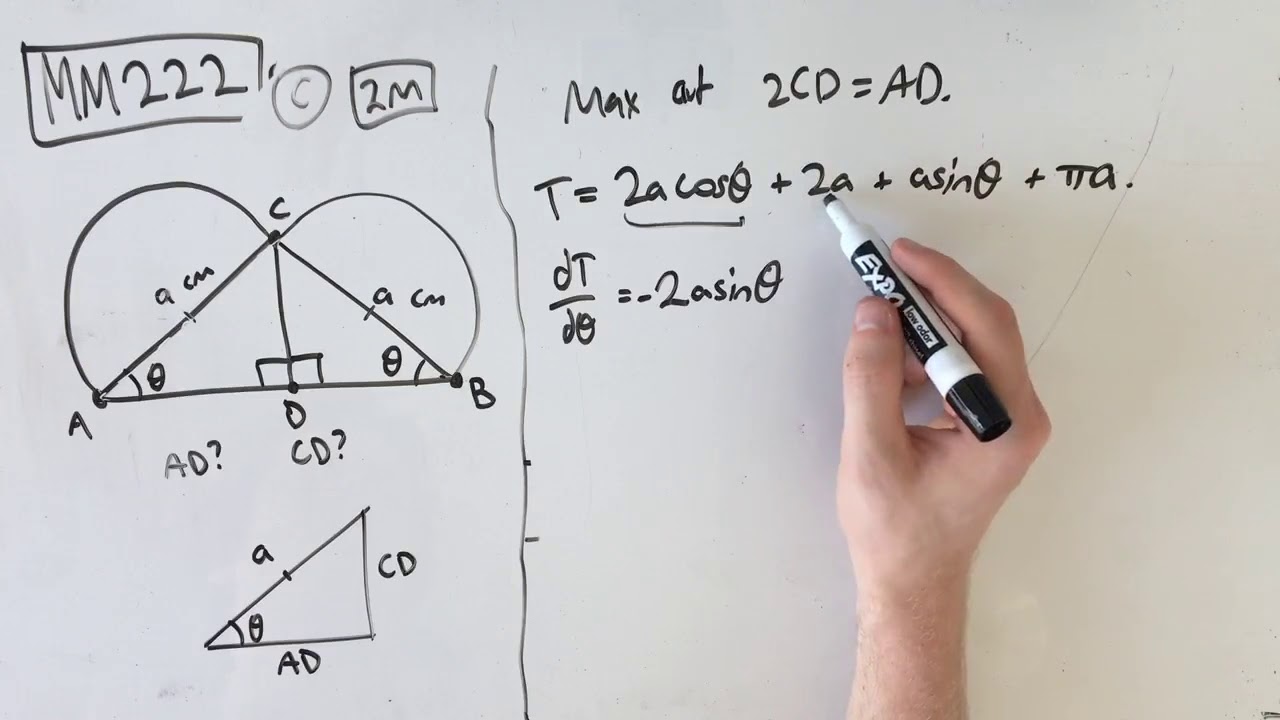 MM222.
C
2M
C
a cm
a cm
θ
θ
A
D
B
AD?
CD?
a
CD
θ
AD
Max at 2CD = AD.
T = 2a cosθ + 2a + asinθ + πa.
dT
dθ
= -2asinθ
EXPO
low odor